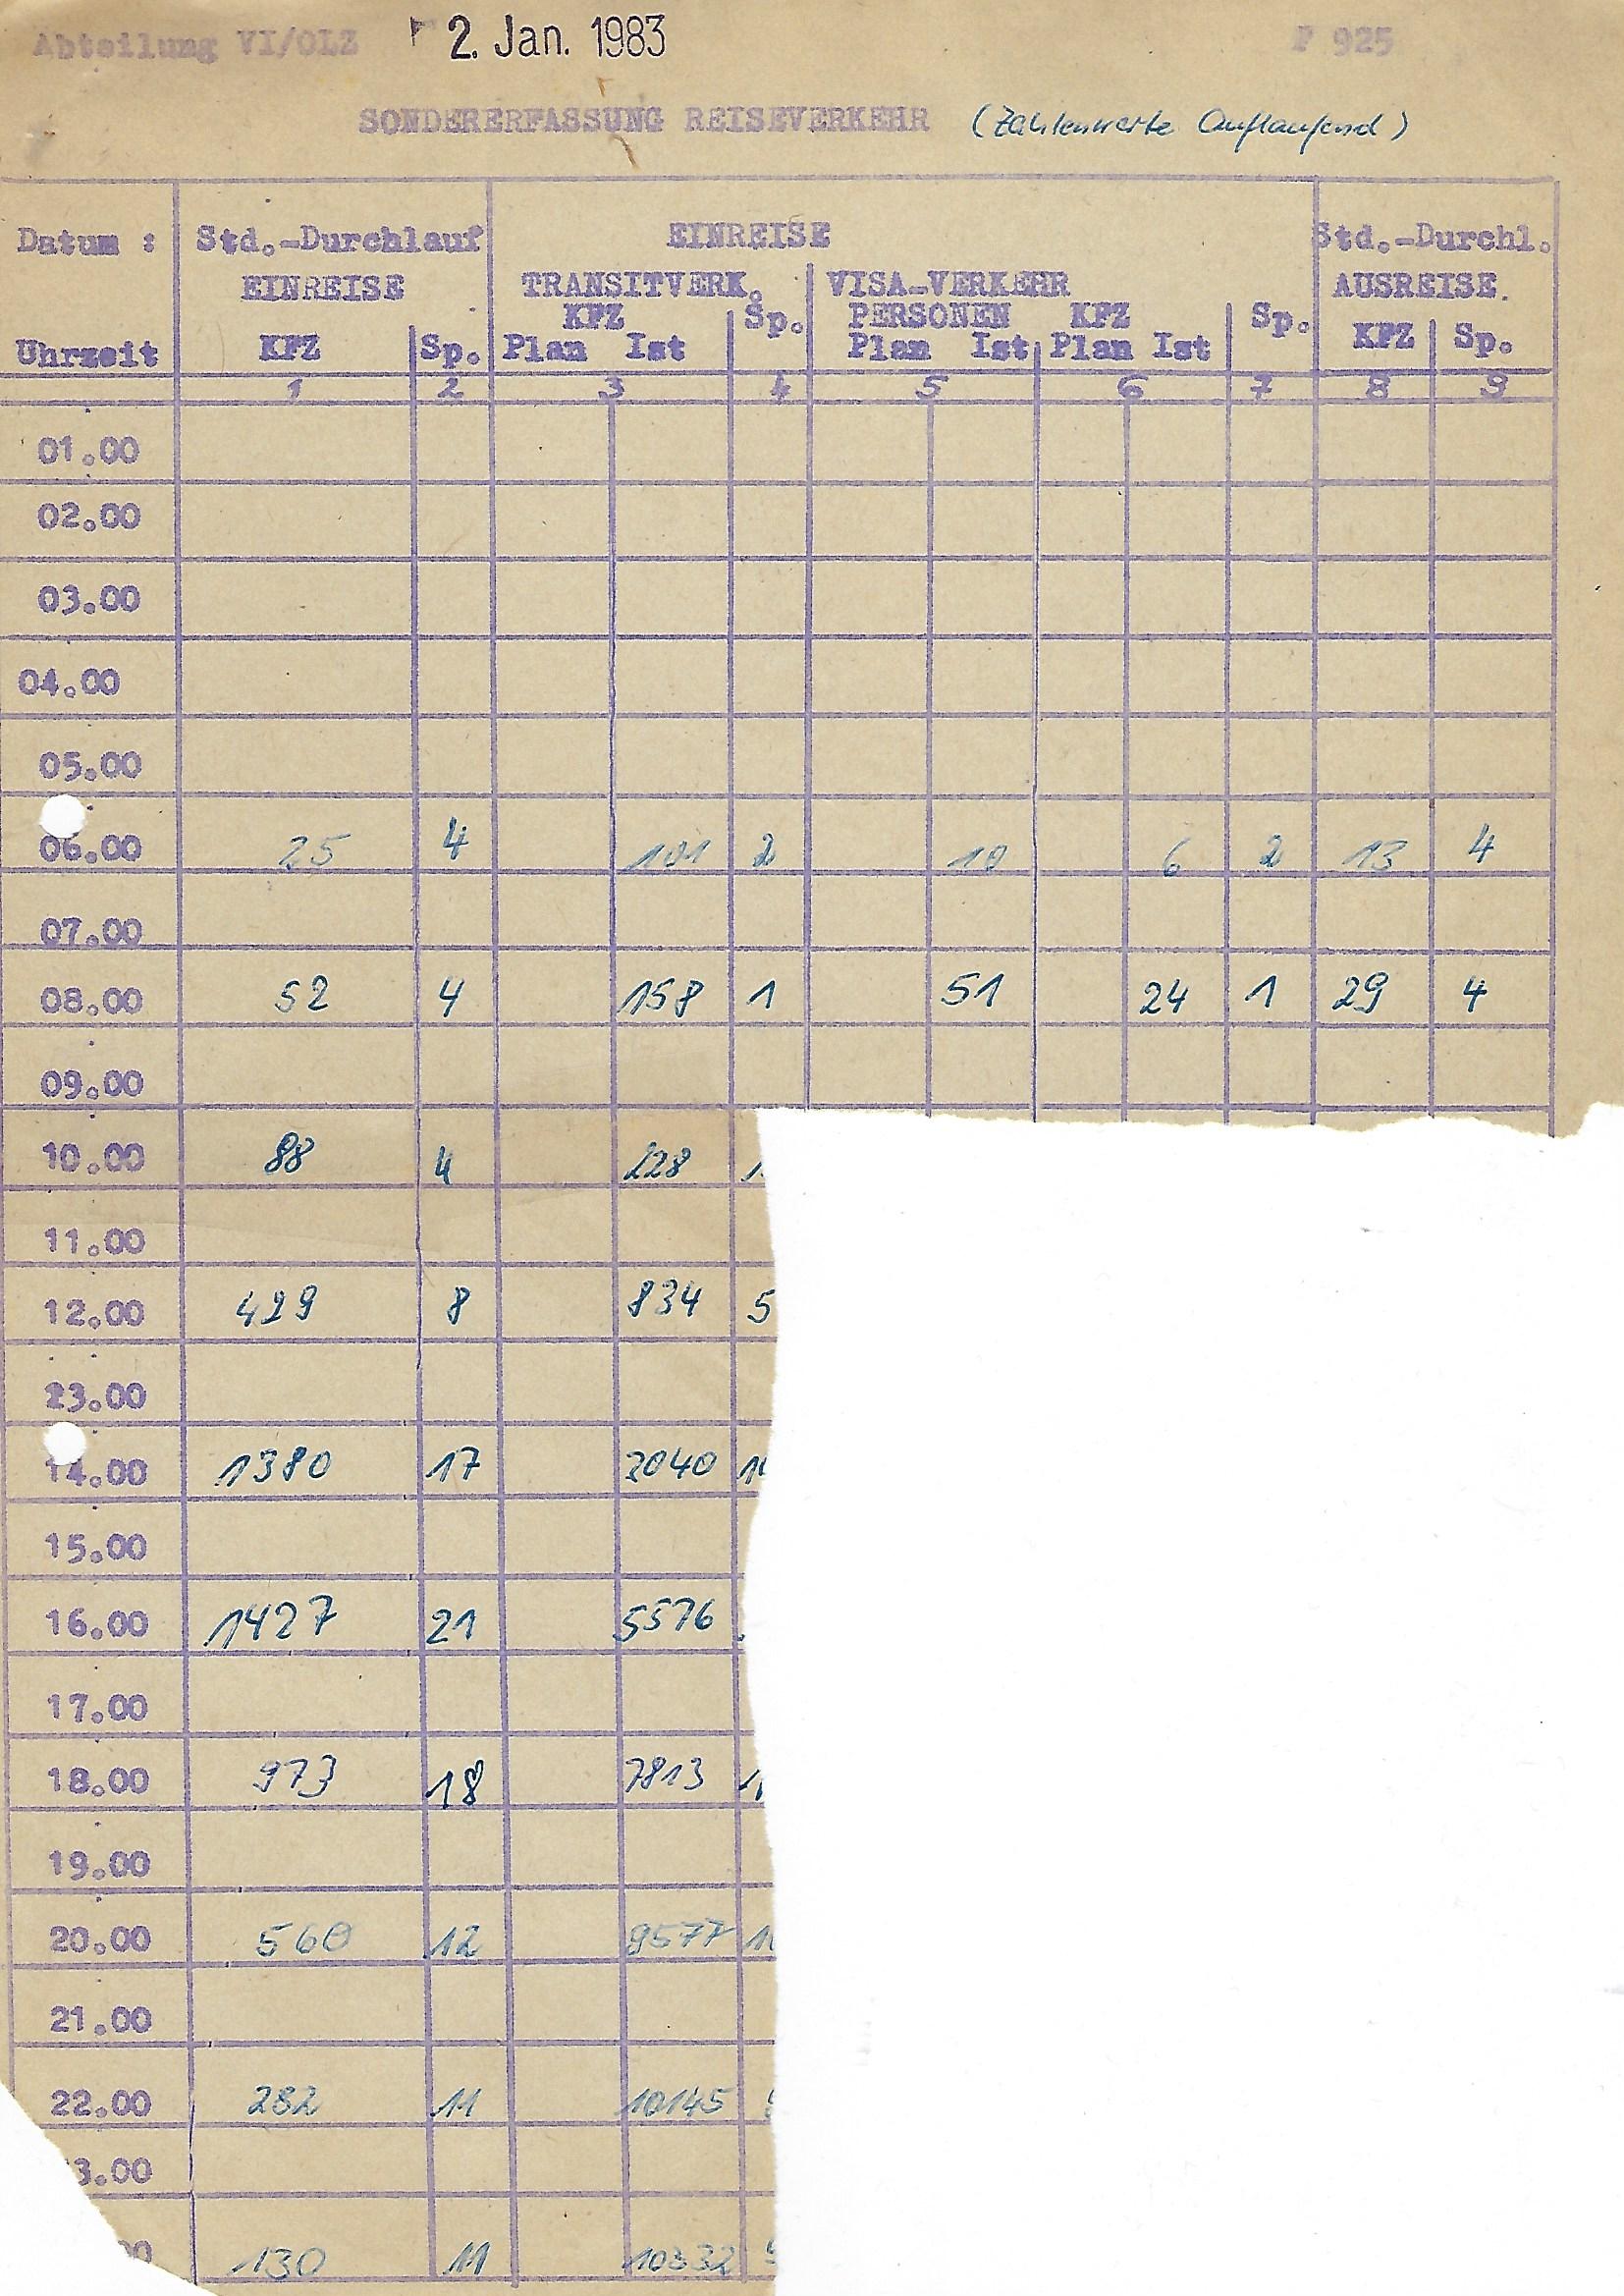 Abteilung VI/OLZ 2. Jan. 1983 P 925
SONDERERFASSUNG REISEVERKEHR (Zahlenwerte Auflaufend)
Datum : Std.-Durchlauf EINREISE Std.-Durchl.
EINREISE TRANSITVERK. VISA-VERKEHR AUSREISE.
KFZ Sp. PERSONEN KFZ Sp.
Uhrzeit KFZ Sp. Plan Ist Plan Ist Plan Ist KFZ Sp.
1 2 3 4 5 6 7 8 9
01.00
02.00
03.00
04.00
05.00
06.00 25 4 101 2 10 6 2 13 4
07.00
08.00 52 4 158 1 51 24 1 29 4
09.00
10.00 88 4 228
11.00
12.00 429 8 834 5
23.00
14.00 1380 17 3040
15.00
16.00 1427 21 5576
17.00
18.00 973 18 7813
19.00
20.00 560 12 9577
21.00
22.00 282 11 10145
3.00
130 11 10332